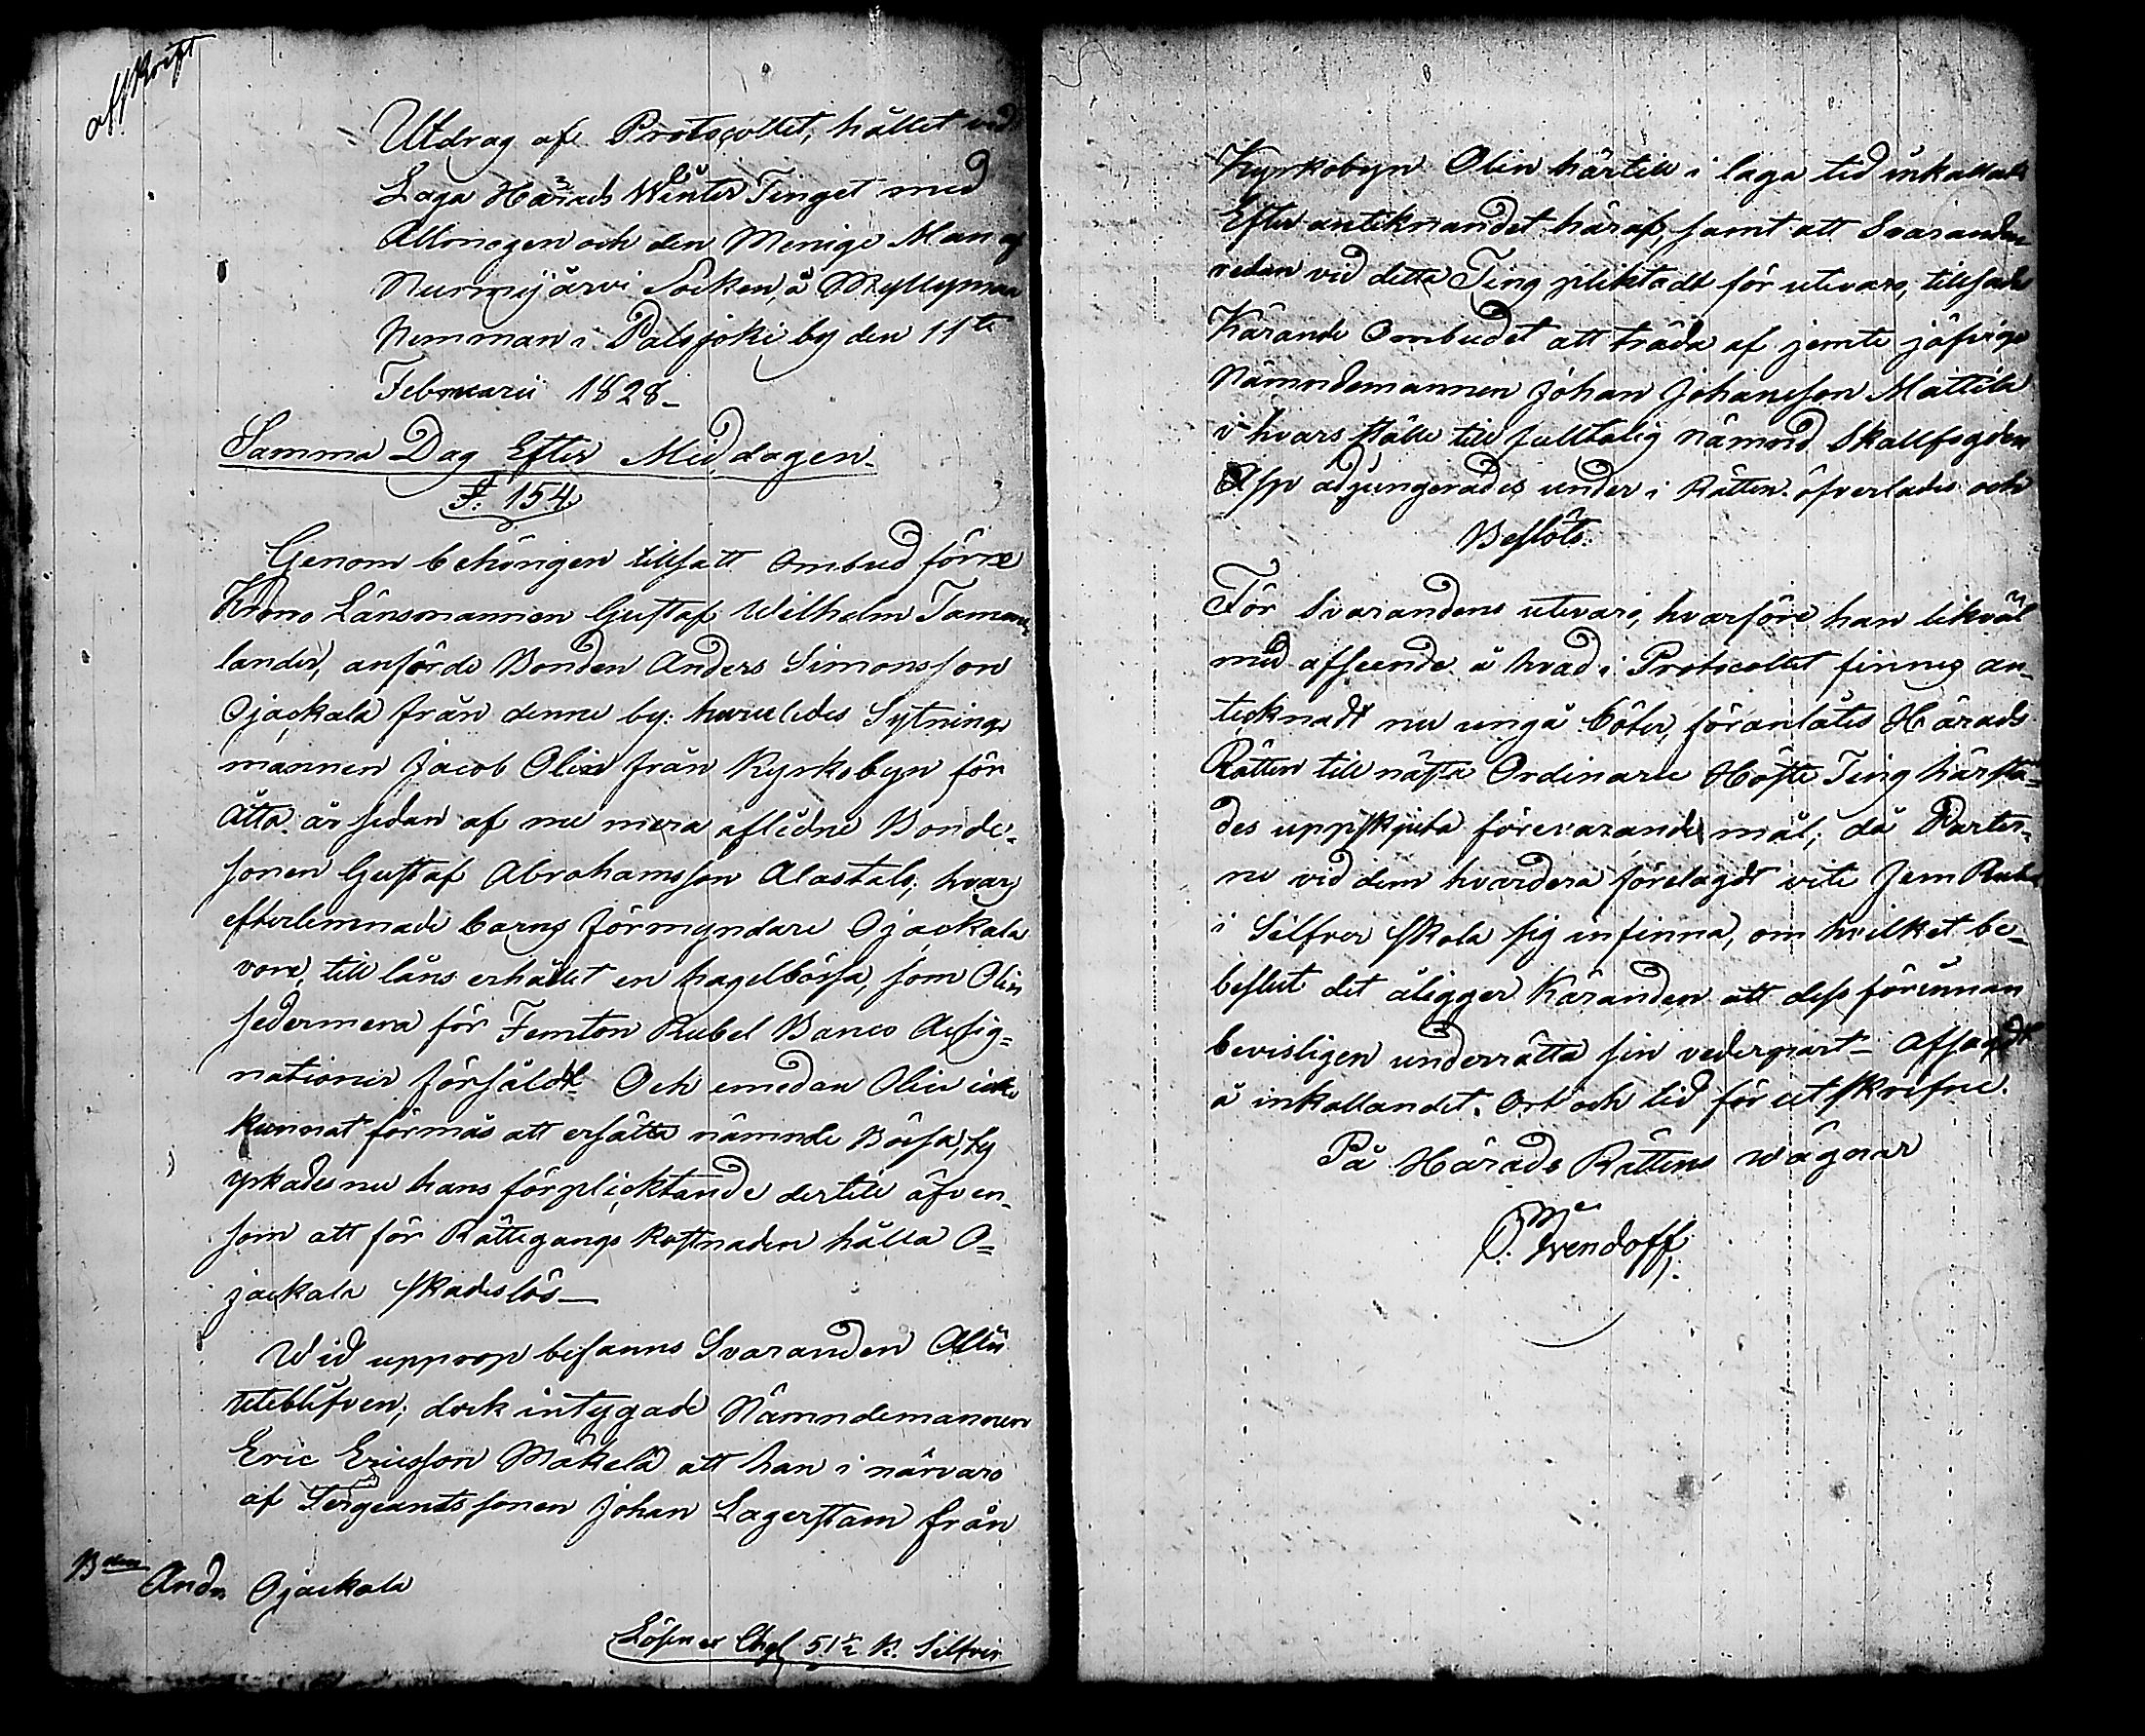 afskrift
Utdrag af Protocollet, hållet vid
Laga Härads Winter Tinget med
Allmogen och den Menige Man af
Nurmijärvi Socken, å Myllymaa
Hemman i Palojoki by den 11te
Februarii 1828_
Samma Dag Efter Middagen_
§. 154.
Genom behörigen tillsatt Ombud förre
Krono Länsmannen Gustaf Wilhelm Tamme-
lander, anförde Bonden Anders Simonsson
Ojackala från denne by: huruledes Sytnings
mannen Jacob Olin från Kyrkobyn för
åtta år sedan af nu mera aflidne Bonde-
sonen Gustaf Abrahamsson Alastalo, hvars
efterlemnade barns förmyndare Ojackala
vore, till låns erhållit en hagelbössa, som Olin
sedermera för Femton Rubel Banco Assig=
nationer försåldt Och emedan Olin icke
kunnat förmås att ersätta nämnde Bössa, ty
yrkades nu hans förplicktande dertill äfven-
som att för Rättegångs kostnaden hålla O=
jackala skadeslös_
Wid upprop befanns Svaranden Olin
uteblifven; dock intygade Nämndemannen
Eric Ericsson Mäkelä att han i närvaro
af Sergeants sonen Johan Lagerstam från
Bden Anders Ojackala
Lösen ex Chgl 51½ K. Silfver
Kyrkobyn Olin härtill i laga tid inkallat
Efter antecknandet häraf, samt att Svaranden
redan vid detta Ting pliktadt för utevaro, tillsades
Kärande Ombudet att träda af jemte jäfvige
Nämndemannen Johan Johansson Mattila
i hvars ställe till fulltalig nämnd Skallfogden
Asp adjungerades under i Rätten öfverlades och
Beslöts.
För Svarandens utevaro, hvarföre han likväl
med afseende å hvad i Protocollet finnes an-
tecknadt nu undgå böter, föranlåtes Härads
Rätten till nästa Ordinarie Höste Ting härstä-
des uppskjuta förevarande mål; då Parter-
ne vid dem hvardera förelagdt vite Fem Rubel
i Silfver skola sig infinna, om hvilket be-
beslut det åligger Käranden att dess förinnan
bevisligen underrätta sin vederpart_ Afsagdt
å inkallandet. Ort och tid för utskrefne.
På Härads Rättens wägnar